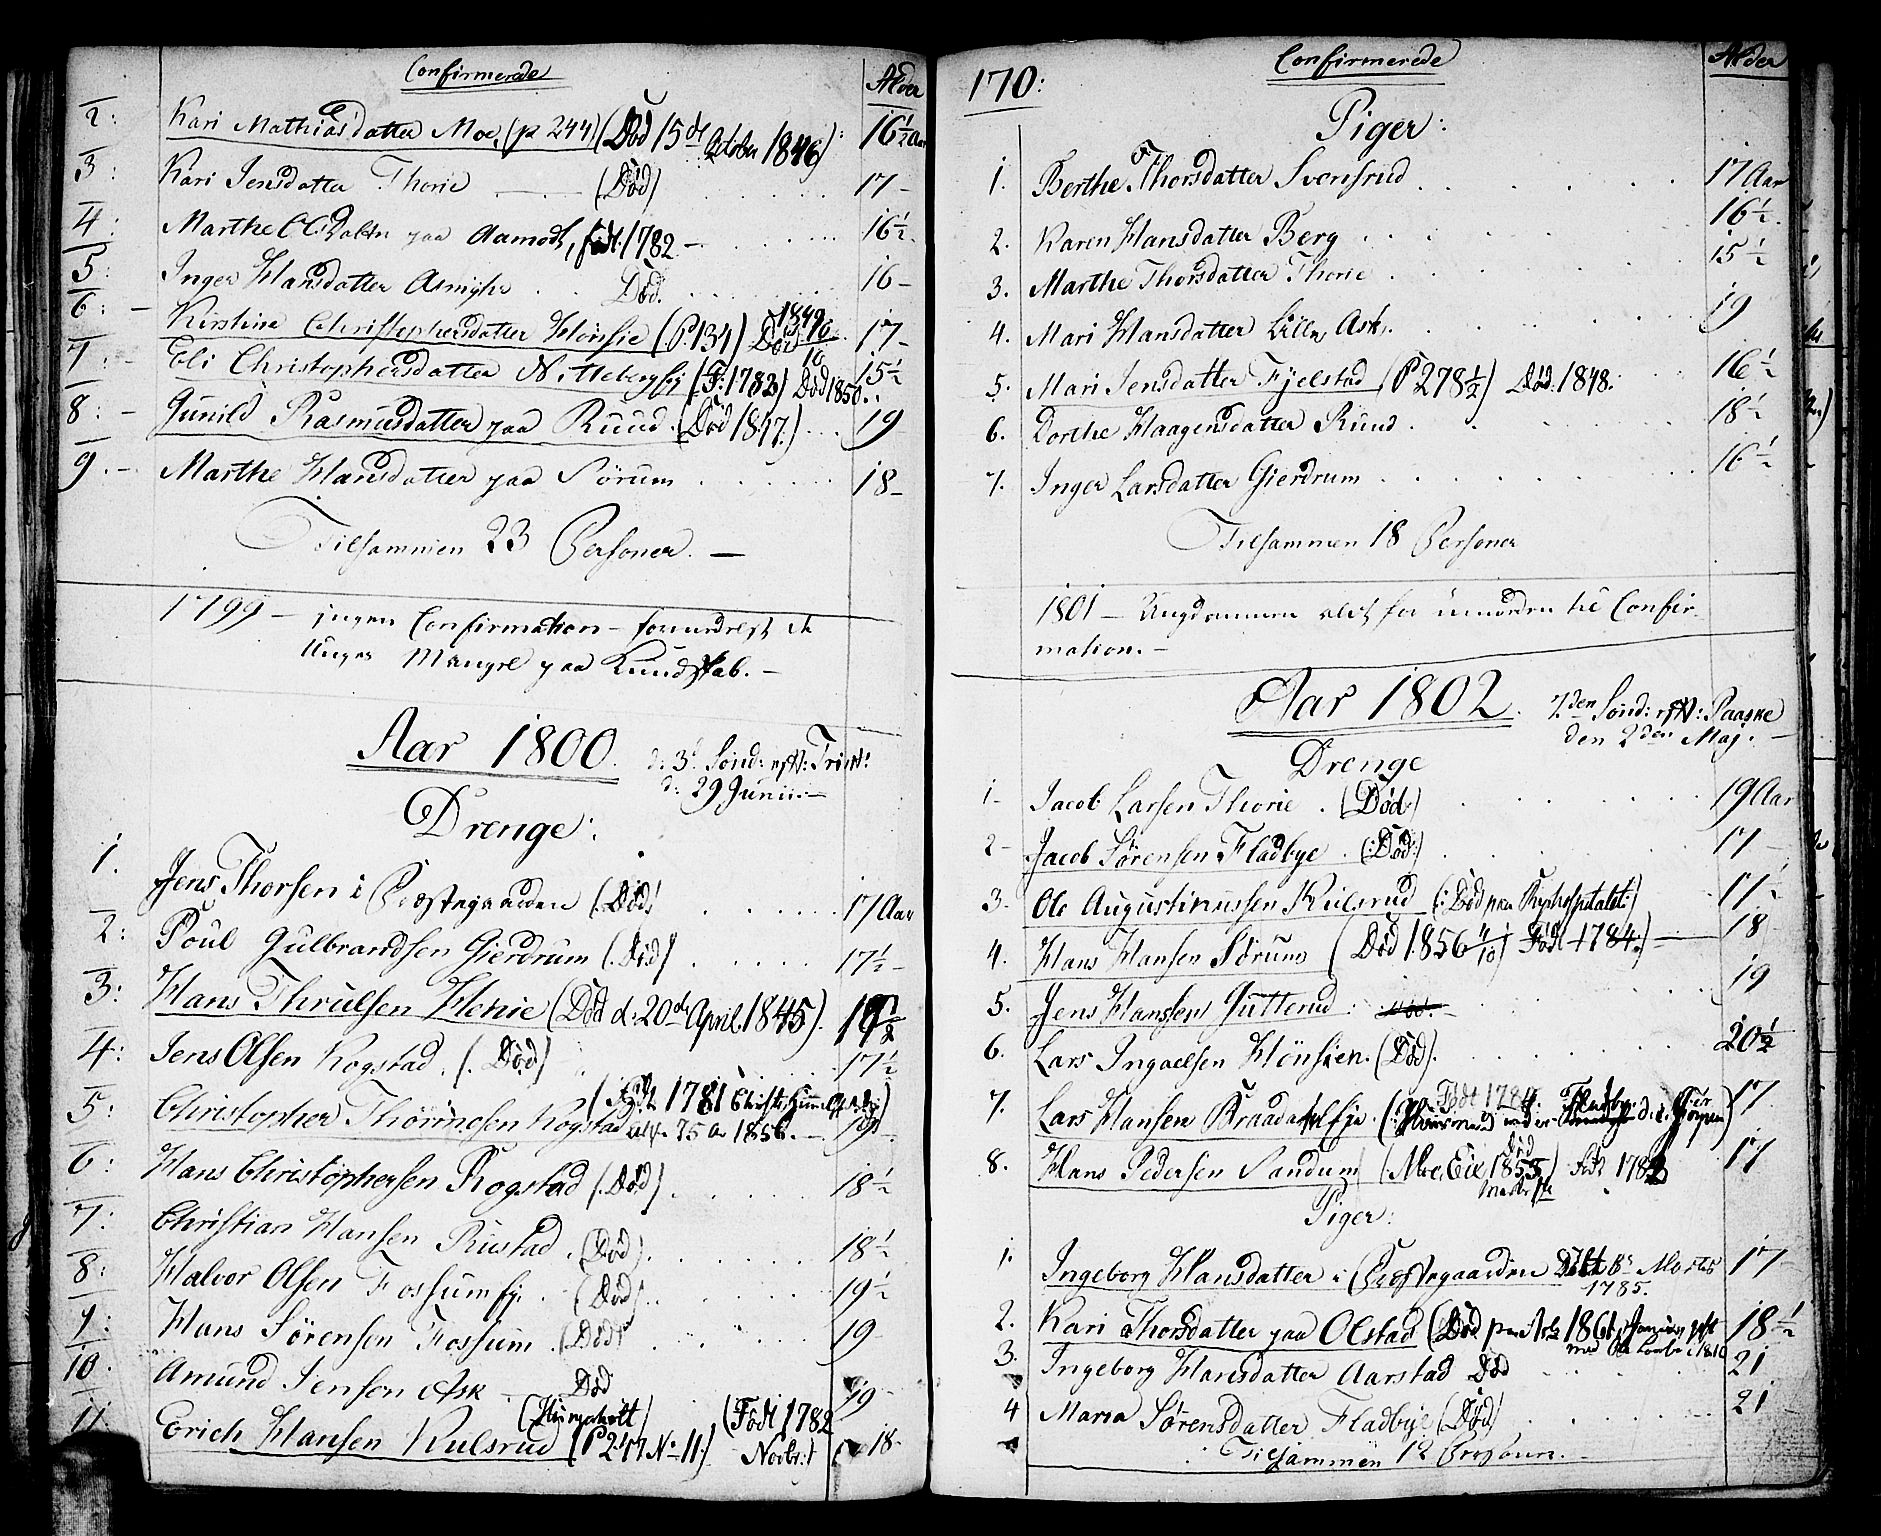 Confirmerede
Alder
2: Kari Mathiasdatter Moe, (p 244) (Død 15de October 1846): 16½ Aar
3: Kari Jensdatter Thorie — (Død) 17 –
4: Marthe paa Aamodt, født 1782 – 16½
5: Inger Hansdatter Død. 16 –
6: – Kirstine Christophersdatter Hønsie (P. 134) Død 1849 17 –
7: – Eli Christophersdatter Nittebergsej (F: 1782) Død 1850 15½
8: – Gunild Rasmusdatter paa Ruud. (Død 1847.) 19
9. – Marthe Hansdatter paa Sørum 18 –
Tilsammen 23 Personer. –
1799 – ingen Confirmation – formedelst de
Unges Mangel paa Kundskab. –
Aar 1800. d: 3d Sønd: eft: Trinit:
d: 29 Junii. –
Drenge:
1. Jens Thorsen i Præstegaarden (Død) 17 Aar
2: Poul Gulbrandsen Gjerdrum (Død) 17½ –
3: Hans Thrulsen Hexie (Død d. 20de April 1845). 19½
4: Jens Olsen Kogstad. (Død) 17½
5: Christopher Kogstad (Født 1781 Christi Himmelf.) 75 Aar 1856. – 19
6: Hans Christophersen Rogstad (Død) 18½
7: Christian Hansen Rustad. (Død). 18½
8: Halvor Olsen Fossumeje. (Død) 19½
9: Hans Sørensen Fossum. (Død) 19
10. Amund Jensen Ask – Død 19 –
11. Erich Hansen Kulsrud (P 247 No 11.) (Født 1782 Novbr:) 18 –
170:
Confirmerede
Alder
Piger:
1. Berthe Thorsdatter Svensrud 17 Aar
2. Karen Hansdatter Berg 16½
3. Marthe Thorsdatter Thorie 15½
4. Mari Hansdatter Lille Ask. 19
5. Mari Jensdatter Fjelstad (P 278½) Død. 1848. 16½
6. Dorthe Haagensdatter Ruud 18½
7. Inger Larsdatter Gierdrum 16½
Tilsammen 18 Personer
1801 – Ungdommen alt for umoden til Confir-
mation. –
Aar 1802. 2den Sønd: eft: Paaske
den 2den Maj. –
Drenge
1 – Jacob Larsen Thorie. (Død) 19 Aar
2 – Jacob Sørensen Fladbye. (:Død:) 17 –
3 – Ole Augustinussen Kulsrud (:Død paa Ryghospitalet:) 17½
4. Hans Hansen Sørum (Død 1856 Født 1784.) – 18
5. Jens Hansen Gutterud: 19
6. Lars Ingvelsen Hønsien. (Død). 20½
7. Lars Hansen Braadahlseje. (Født 1784. 17
8. Hans Pedersen Sandum (Moe, Eie Død 1855) Født 178 17
Piger:
1. Ingeborg Hansdatter i Præstegaarden født Mortes 1785. 17 –
2. Kari Thorsdatter paa Olstad (Død paa Ask 1861, Januar, gift med Ole i 1810 18½
3. Ingeborg Hansdatter Aarstad Død 21
4 Maria Sørensdatter Fladbye (Død) 21
Tilsammen 12 Personer. –